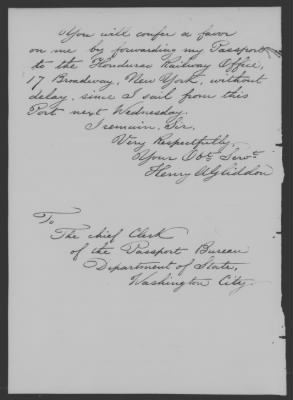 You will confer a favor
on me by forwarding my Passport
to the Honduras Railway Office,
17 Broadway, New York, without
delay, since I sail from this
Port next Wednesday.
I remain, Sir,
Very Respectfully,
Your Obt. Servt.
Henry A Gliddon
To
The chief Clerk
of the Passport Bureau
Department of State,
Washington City.